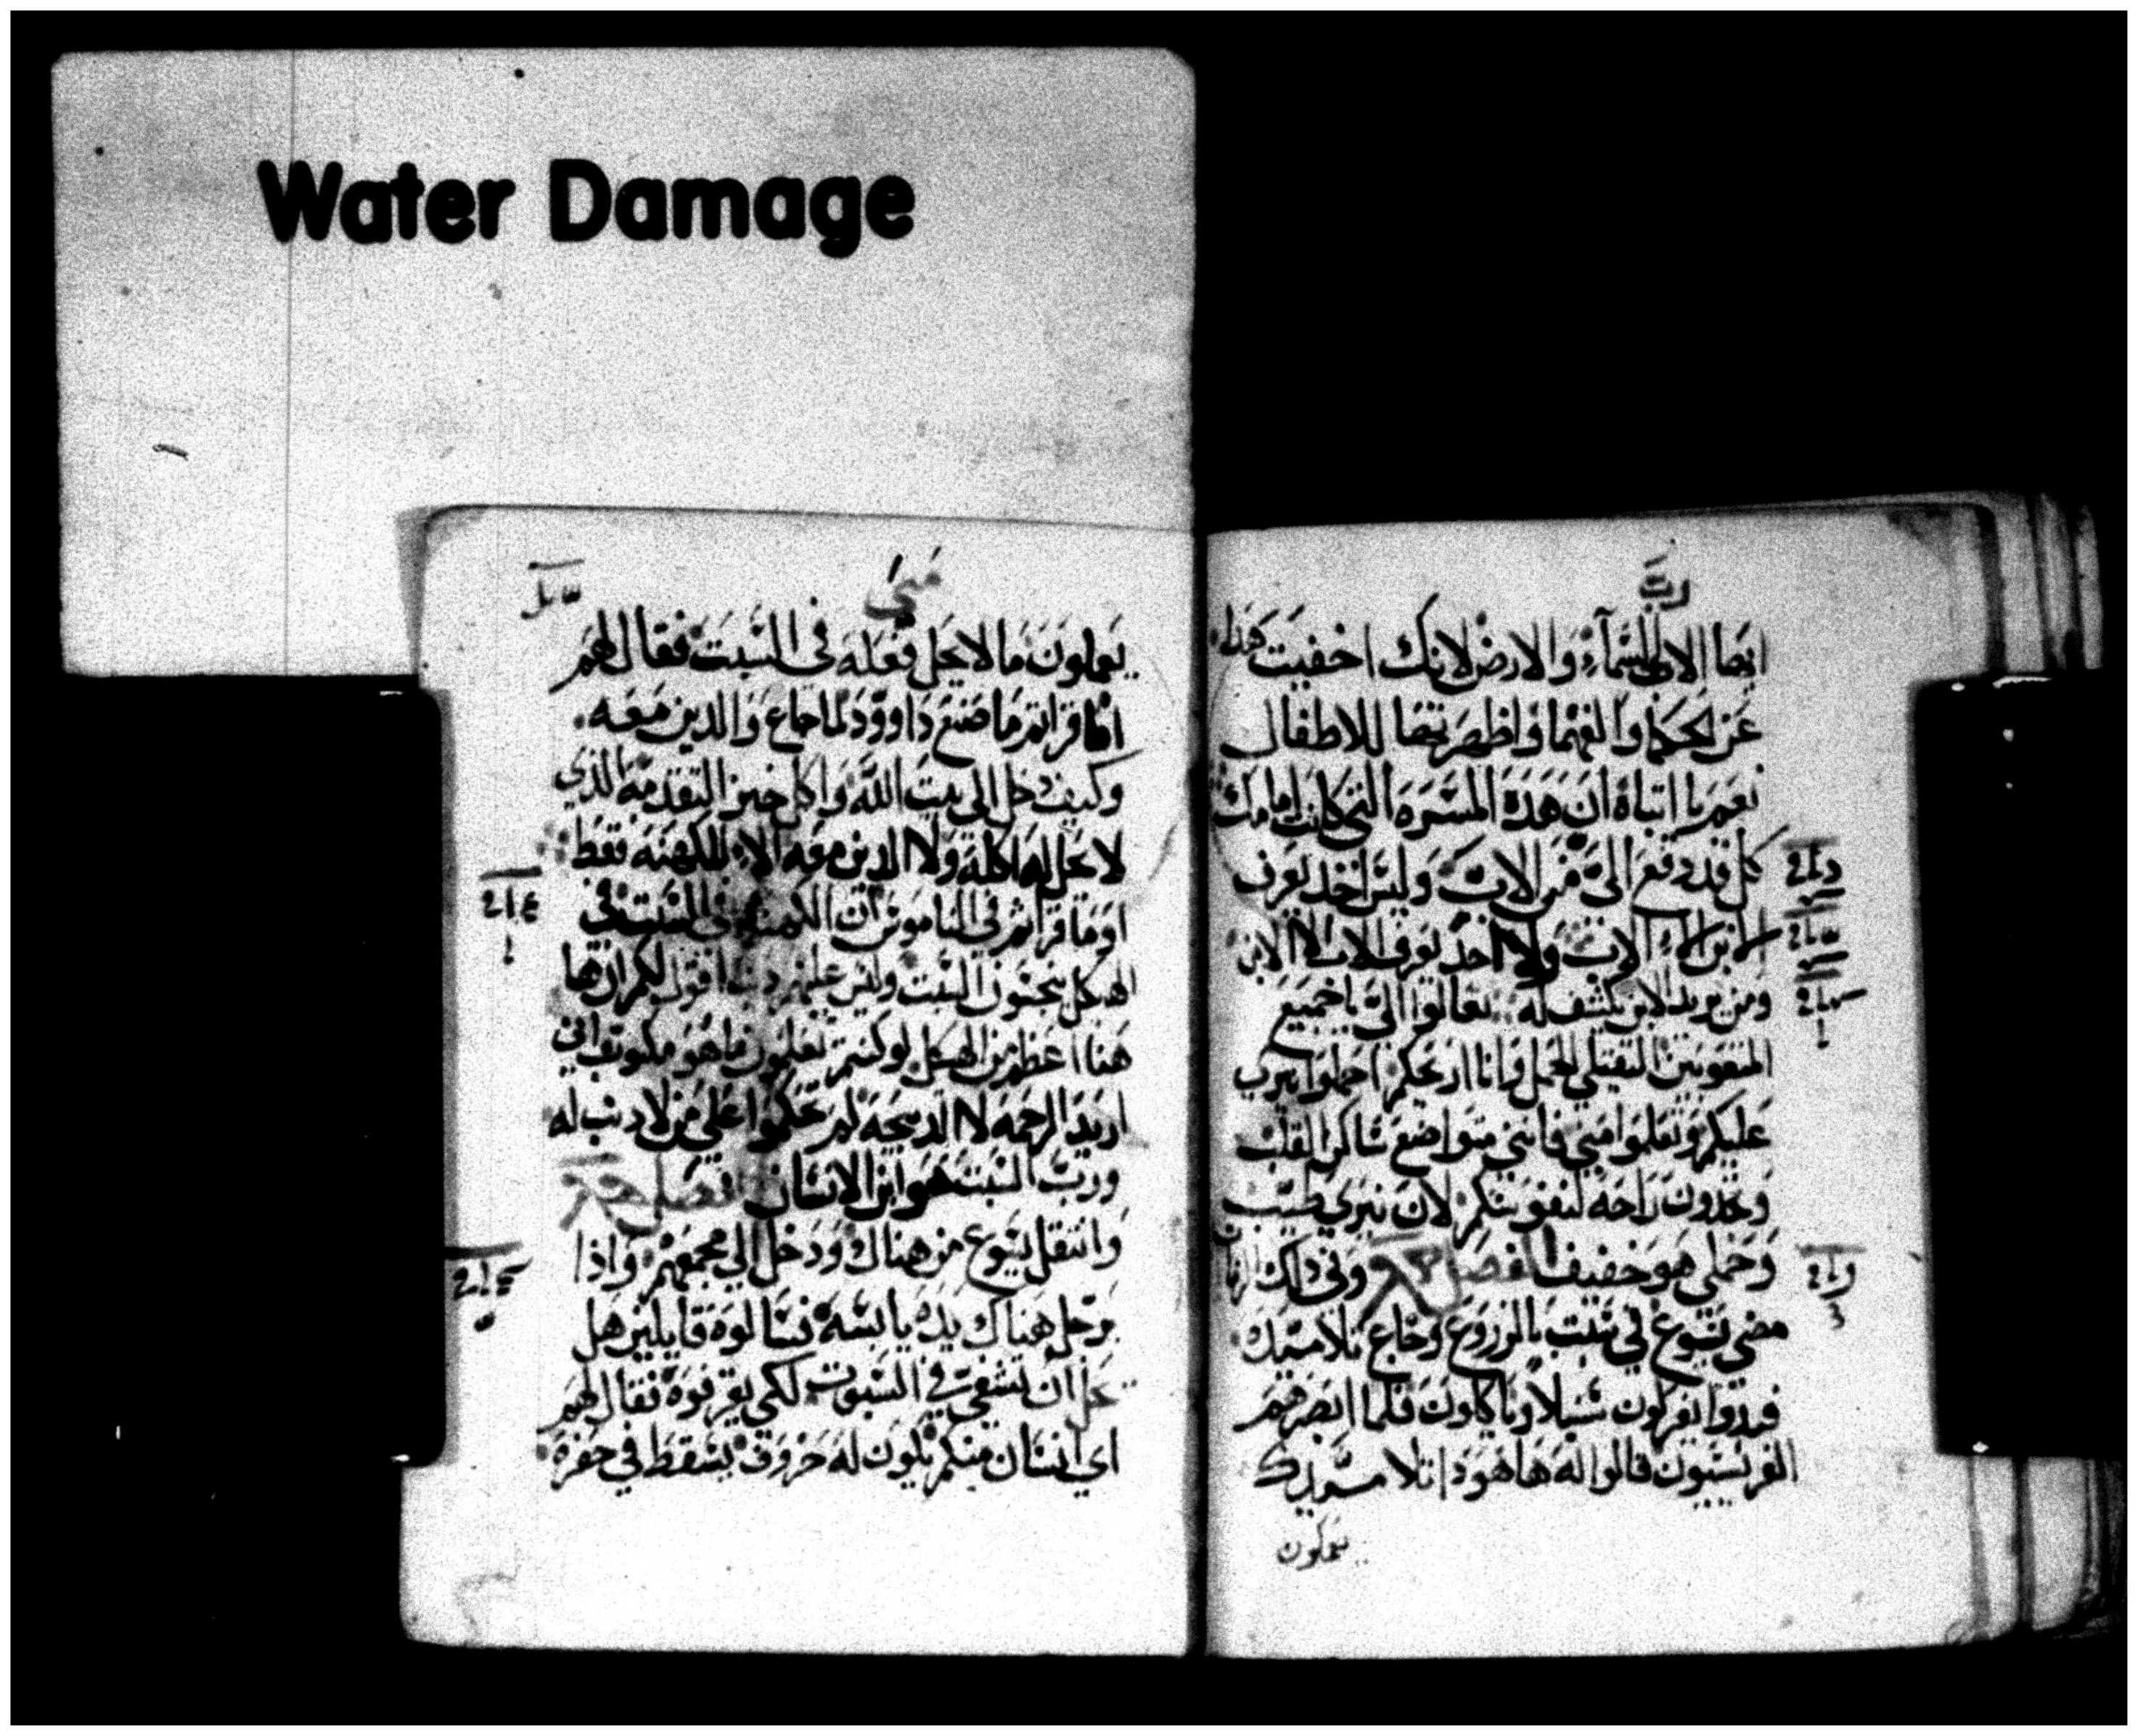 Water Damage
ايها الاب السماء والارض لانك اخفيت هذا
عن الحكما والفهما واظهرتها للاطفال
نعم يا ابتاه ان هده المسره التي كانت امامك
كل قد دفع الى من الاب وليس احد يعرف
الابن الا الاب ولا احد يعرف الاب الا الابن
ومن يريد الابن يكشف له تعالوا الى يا جميع
المتعوبين الثقيلي الحمل وانا اريحكم احملوا نيري
عليكم وتعلموا مني فانني متواضع ساكن القلب
وتجدون راحه لنفوسكم لان نيري طيب
وحملي هو خفيف الفصل وفي ذلك الزمان
مضى يسوع في سبت بالزروع وجاع تلاميذك
فبدوا يفركون سنبلا وياكلون فلما ابصرهم
الفريسيون قالوا له ها هودا تلاميذك
يعملون
متى
يعملون ما لا يحل فعله في السبت فقال لهم
اما قراتم ما صنع داوود لما جاع والدين معه
وكيف دخل الى بيت الله واكل خبز التقدمه الذي
لا يحل له اكله ولا الدين معه الا للكهنه فقط
او ما قراتم في الناموس ان الكهنه في السبت في
الهيكل ينجسون السبت وليس عليهم دنب اقول لكم ان هاهنا
هنا اعظم من الهيكل لو كنتم تعلمون ما هو مكتوب اني
اريد الرحمه لا الدبيحه لم تحكموا على من لا دنب له
ورب السبت هو ابن الانسان الفصل
وانتقل يسوع من هناك ودخل الى مجمعهم واذا
برجل هناك يده يابسه فسالوه قايلين هل
يحل ان يشفى في السبوت لكي يقرفوه فقال لهم
اي انسان منكم يكون له خروف يسقط في حفره